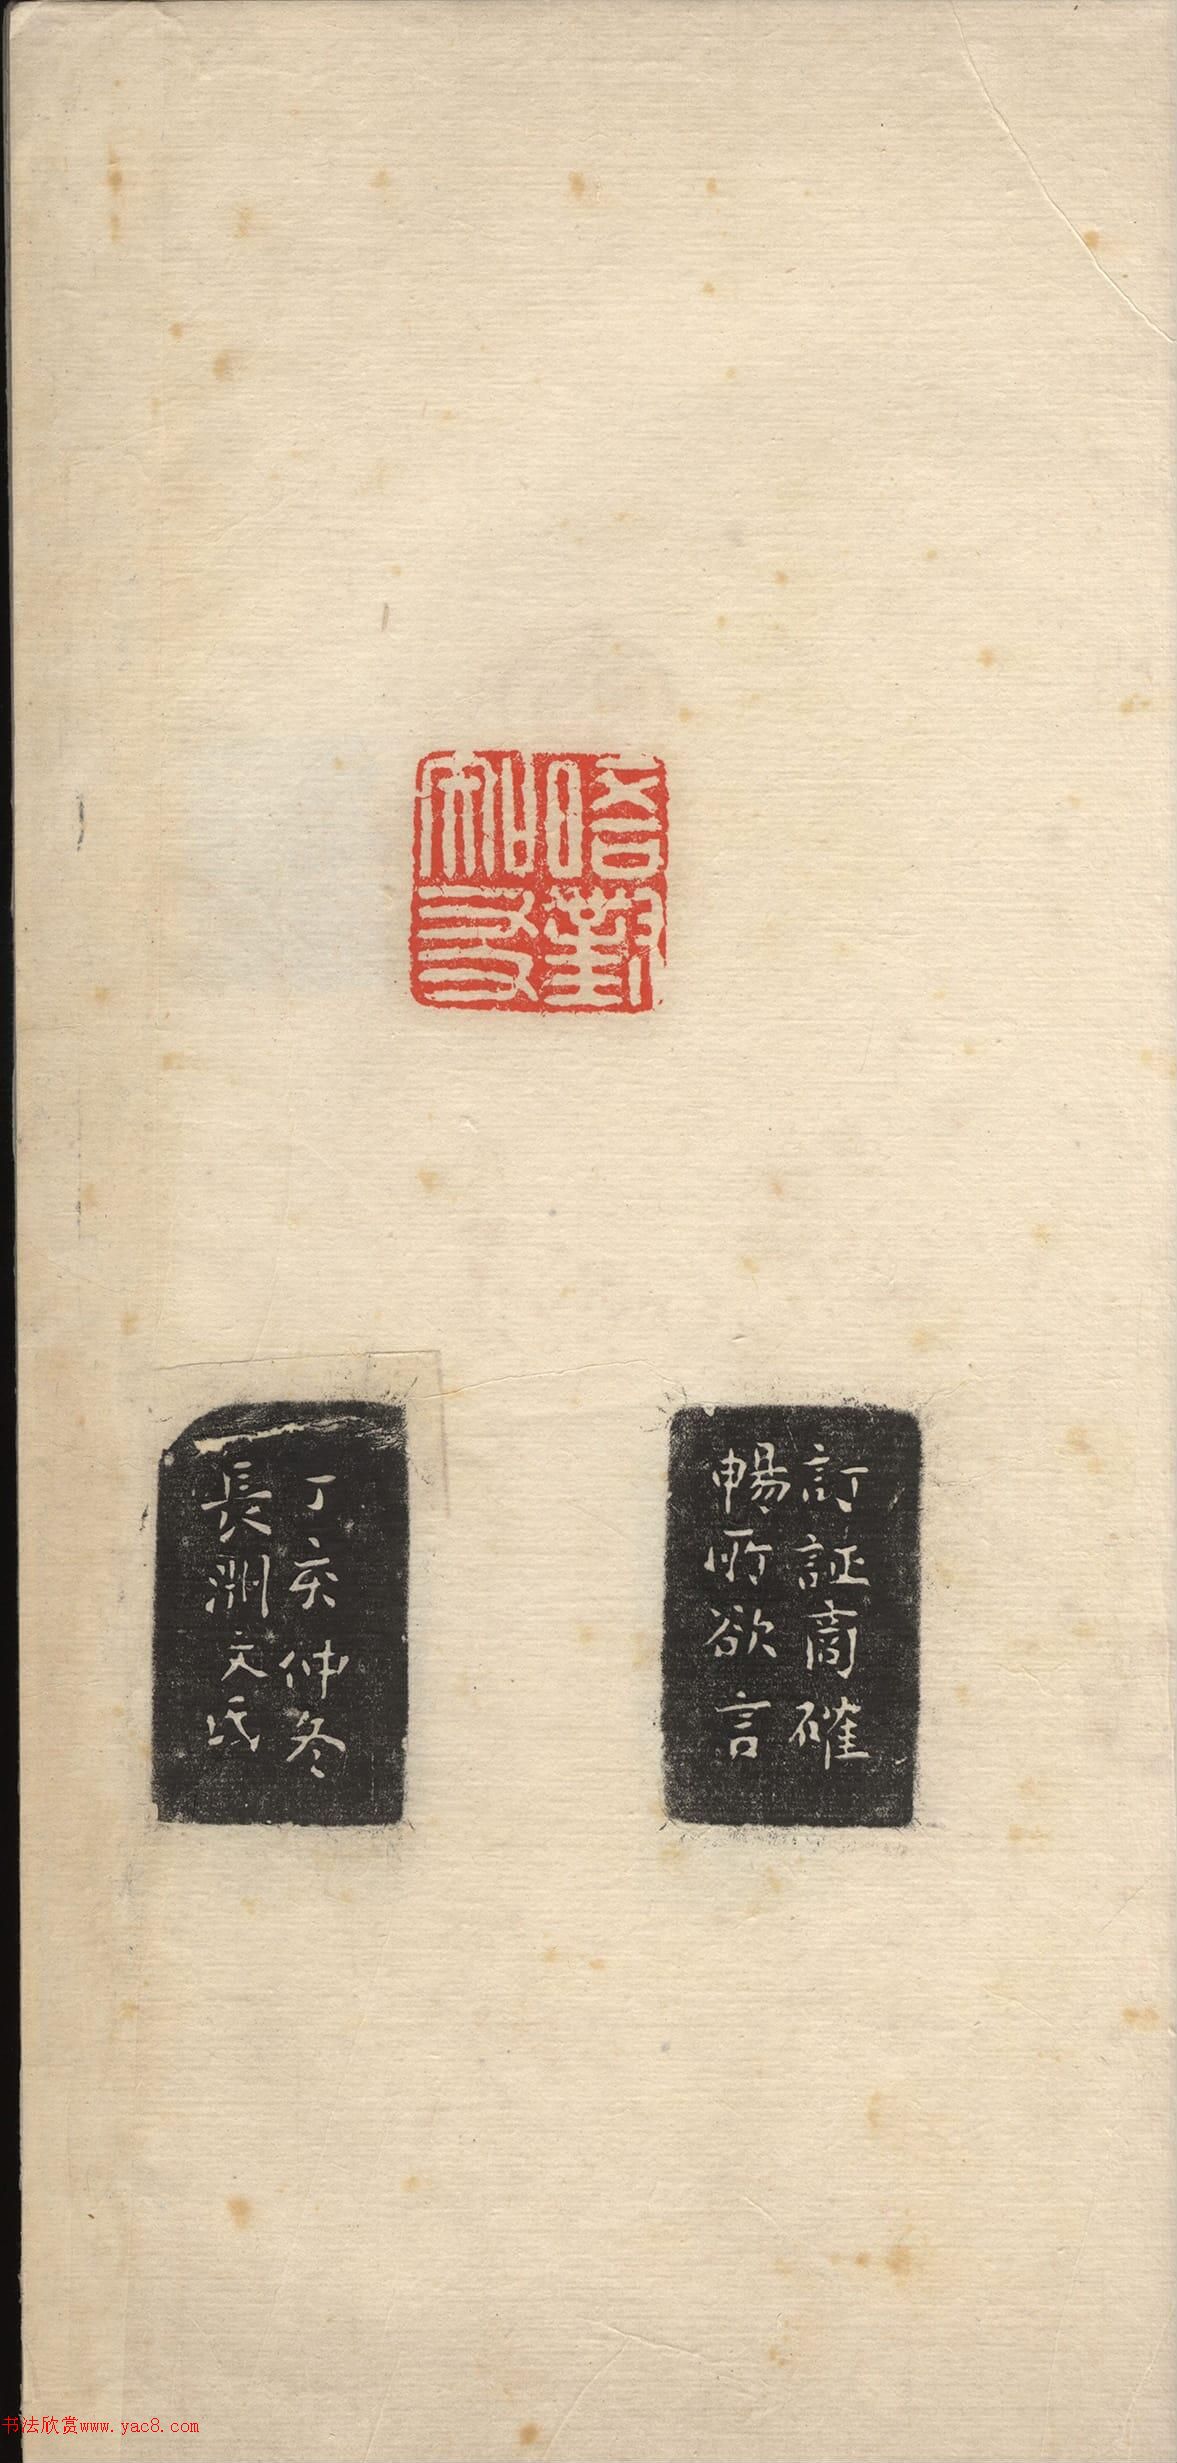 晤對
友
訂証商確
暢所欲言
丁亥仲冬
長洲文氏
书法欣赏www.yac8.com